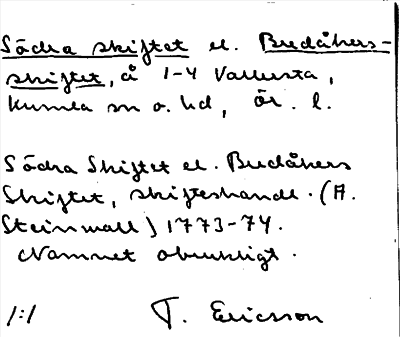 Södra skiftet el. Bredåkers-
skiftet, å 1-4 Vallersta,
Kumla sn o. hd, Ör. l.
Södra Skiftet el. Bredåkers
Skiftet, skifteshandl. (A.
Steinwall) 1773-74.
Namnet obrukligt.
1:1 T. Ericsson